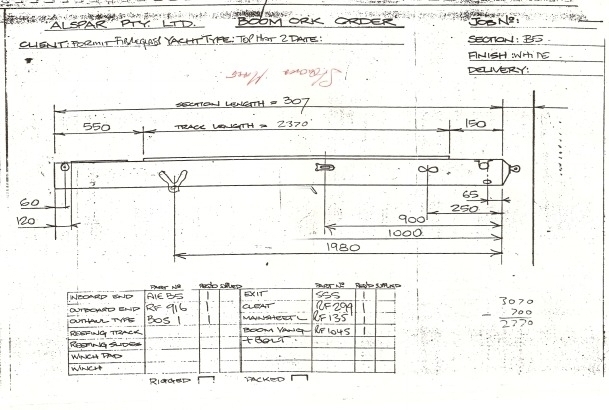 ALSPAR PTY. LTD. BOOM ORK ORDER JOB No:
CLIENT: YACHT TYPE: TOP HAT 2 DATE:
SECTION: B5
FINISH: WHITE
DELIVERY:
SECTION LENGTH = 307
550 TRACK LENGTH = 2370 150
60
120
65
250
900
1000
1980
PART No REQ'D SUPPLIED PART No REQ'D SUPPLIED
INBOARD END A1E B5 1 EXIT SSS
OUTBOARD END RF 916 1 CLEAT RF 299
OUTHAUL TYPE BOS 1 1 MAINSHEET RF 135 1
REEFING TRACK BOOM VANG RF 1045 1
REEFING SLIDES + BOLT
WINCH PAD
WINCH
RIGGED PACKED
3070
- 700
2770